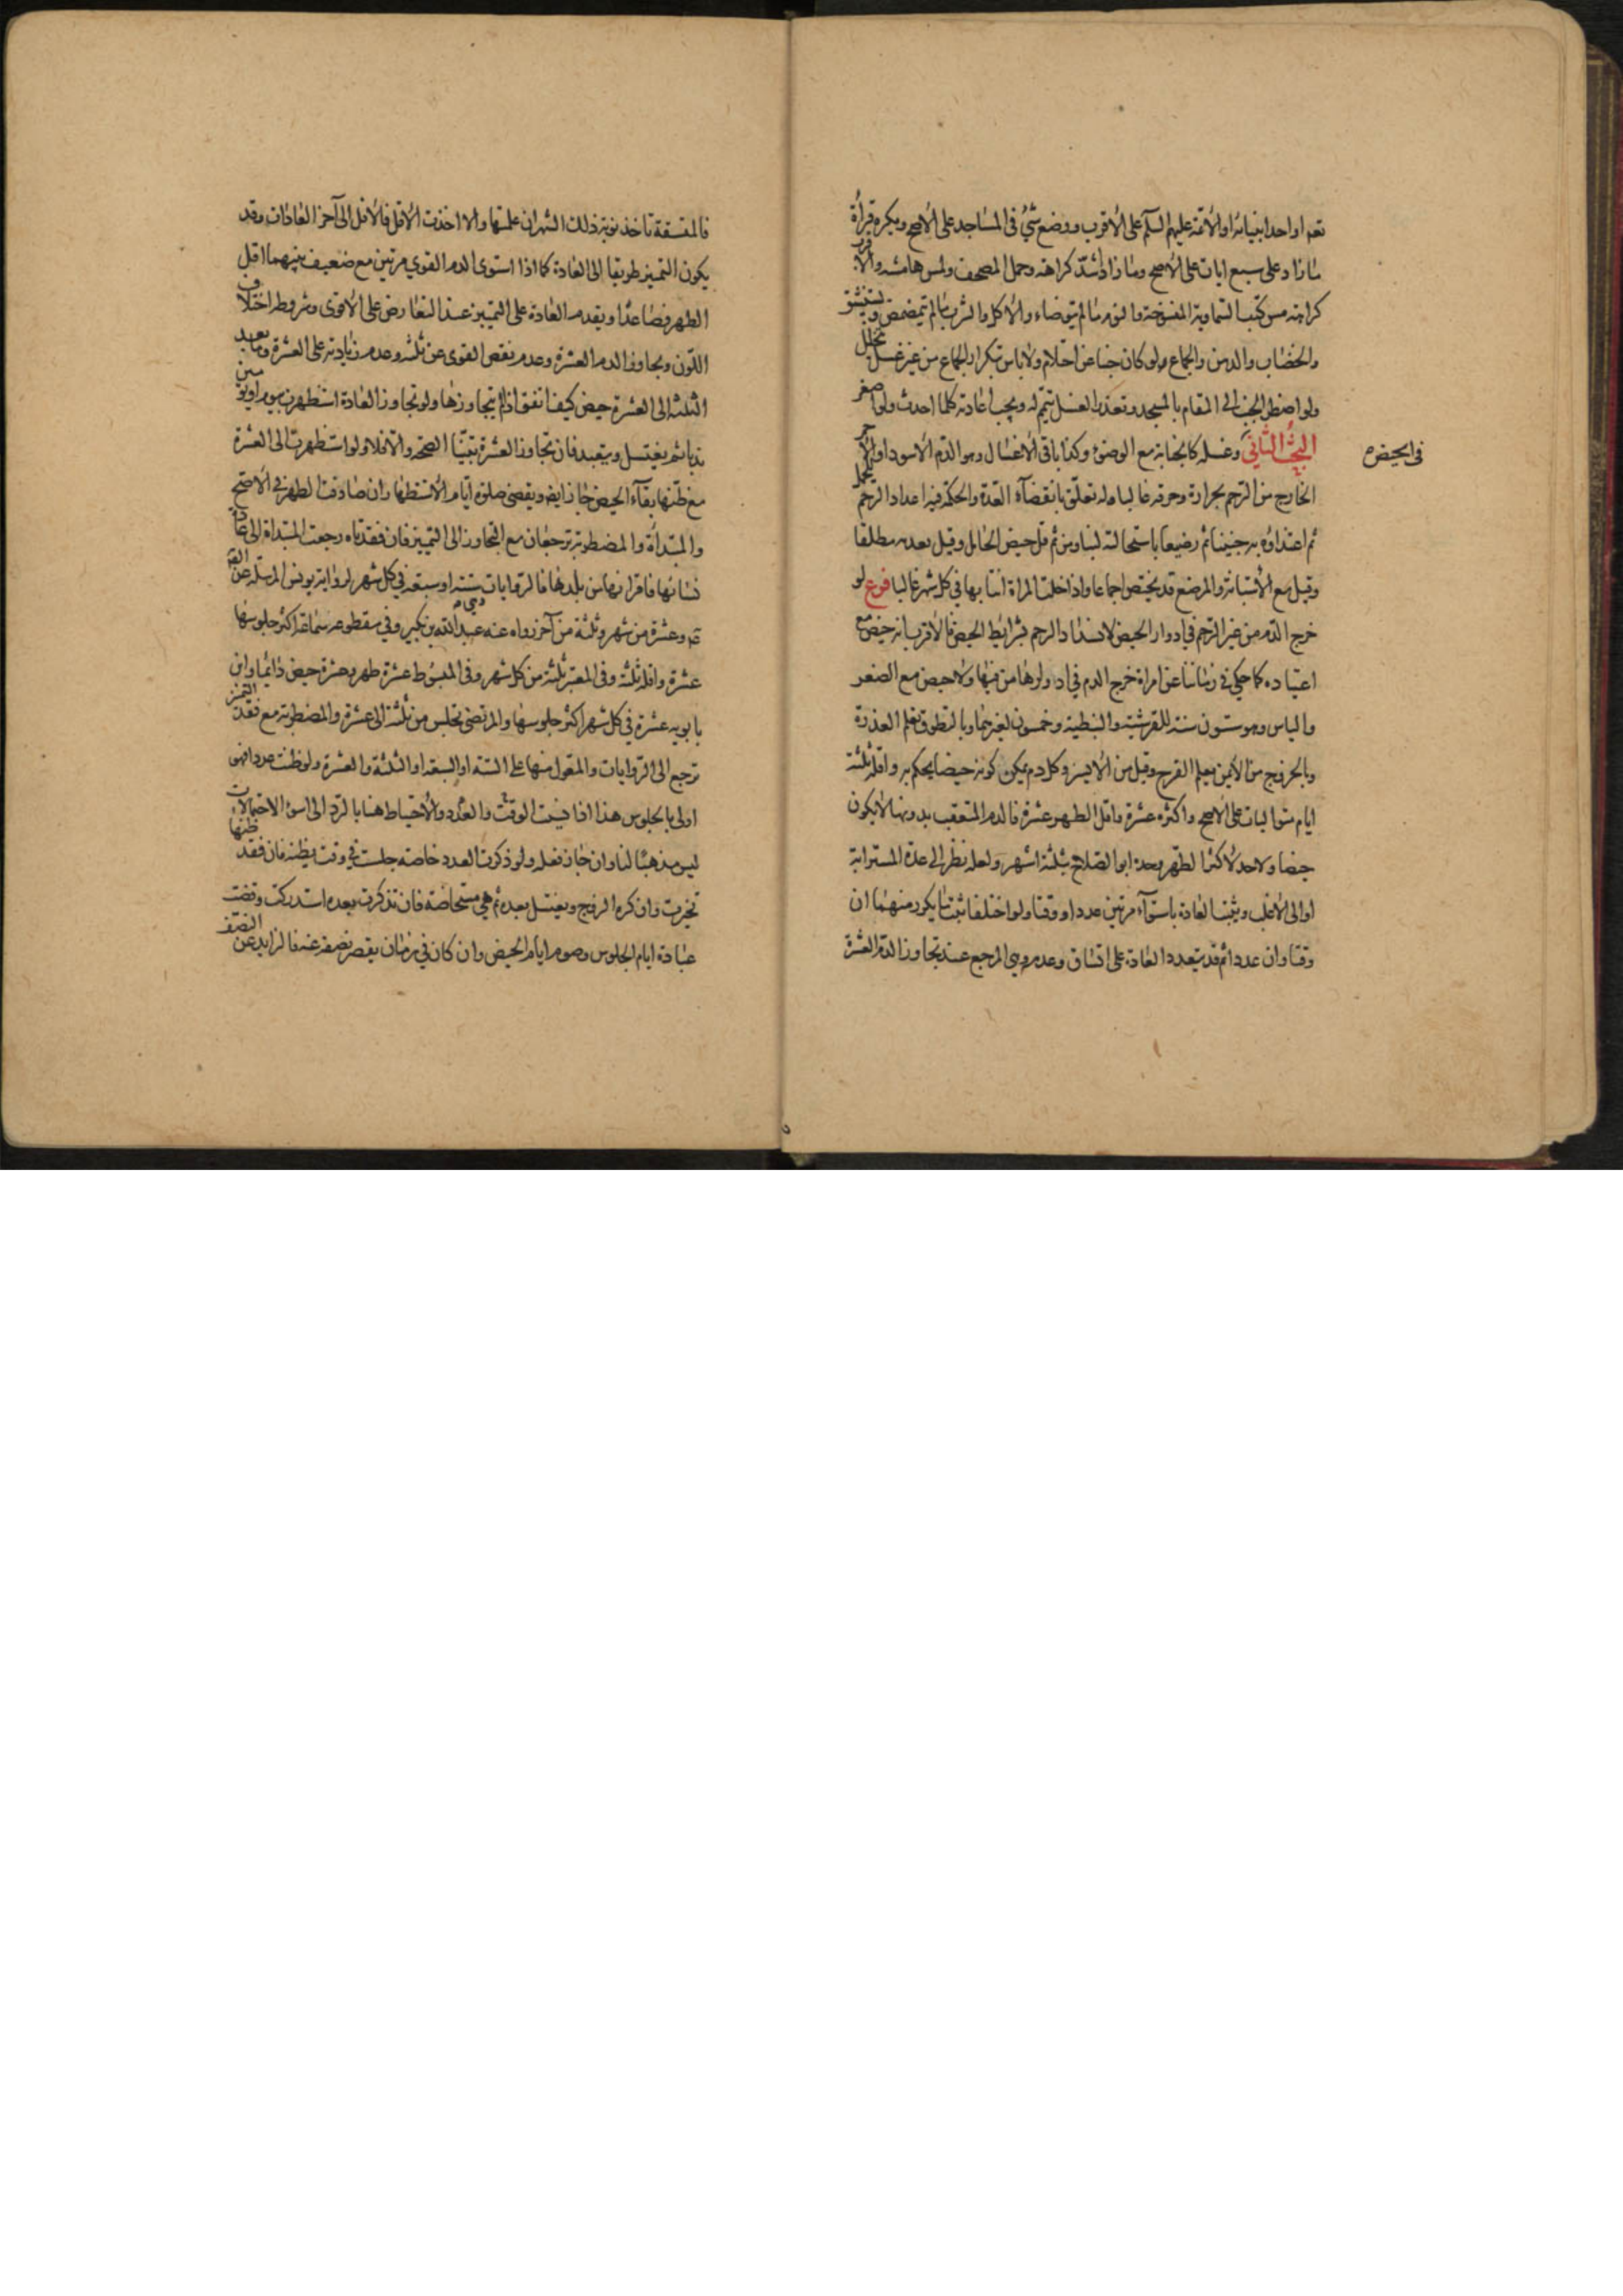 نعم او احد انبيائه او الأئمة عليهم السلم على الأقرب ووضع شئ فى المساجد على الأصح ويكره قرأة
ما زاد على سبع ايات على الأصح وما زاد اشد كراهة وحمل المصحف ولمس هامشه والأقرب
كراهة مس كتب السماوية المنسوخة والنوم ما لم يتوضاء والأكل والشرب ما لم يتمضمض ويستنشق
والخضاب والدهن والجماع ولو كان جنبا عن احتلام ولا باس بتكرار الجماع من غير غسل يتخلل
ولو اضطر الجنب الى المقام بالمسجد وتعذر الغسل تيمم له ويجب اعادته كلما احدث ولو اصغر
فى الحيض
البحث الثانى وغسله كالجنابة مع الوضوء وكذا باقى الأغسال وهو الدم الأسود او الأحمر
الخارج من الرحم بحرارة وحرقة غالبا وله تعلق بانقضآء العدة والحكمة فيه اعداد الرحم للحمل
ثم اغتذاؤه به جنينا ثم رضيعا باستحالته لبنا ومن ثم قل حيض الحامل وقيل بعدمه مطلقا
وقيل مع الأستبانة والمرضع قد تحيض اجماعا واذا خلت المراة انتابها فى كل شهر غالبا فروع لو
خرج الدم من غير الرحم فى ادوار الحيض لانسداد الرحم بشرايط الحيض فالأقرب انه حيض مع
اعتياده كما حكى فى زماننا عن امراة خرج الدم فى ادوارها من فيها ولا حيض مع الصغر
والياس وهو ستون سنة للقرشية والنبطية وخمسون لغيرهما وبالتطوق تعلم العذرة
وبالخروج من الأيمن يعلم القرح وقيل من الأيسر وكل دم يمكن كونه حيضا يحكم به واقله ثلثة
ايام متواليات على الأصح واكثره عشرة واقل الطهر عشرة فالدم المتعقب بدونها لا يكون
حيضا ولا حد لأكثر الطهر وحده ابو الصلاح بثلثة اشهر ولعله نظر الى عدة المسترابة
او الى الأغلب ويثبت العادة باستوآء مرتين عددا ووقتا ولو اختلفا ثبت ما يكرر منهما ان
وقتا وان عددا ثم قد يتعدد العادة على اتساق وعدمه وهى المرجع عند تجاوز الدم العشرة
فالمتسقة تاخذ نوبة ذلك الشهر ان علمتها والا اخذت الأقل فالأقل الى آخر العادات وقد
يكون التميز طريقا الى العادة كما اذا استوى الدم القوى مرتين مع ضعيف بينهما اقل
الطهر فصاعدا ويقدم العادة على التميز عند التعارض على الأقوى وشروط اختلاف
اللون وتجاوز الدم العشرة وعدم نقص القوى عن ثلثة وعدم زيادته على العشرة وما بعد
الثلثة الى العشرة حيض كيف اتفق اذا لم يتجاوزها ولو تجاوز العادة استظهرت بيوم او يومين
ندبا ثم يغتسل ويتعبد فان تجاوز العشرة تبينا الصحة والا فلا ولو استظهرت الى العشرة
مع ظنها بقآء الحيض جاز ايض ويقضى صلوة ايام الأستظهار وان صادفت الطهر فى الأصح
والمبتدأة والمضطربة ترجعان مع التجاوز الى التميز فان فقدتاه رجعت المبتداة الى عادة
نسائها فاقرانها من بلدها فالروايات ستة او سبعة فى كل شهر لرواية يونس المرسلة عن الص
ع وعشرة من شهر وثلثة من آخر رواه عنه عبد الله بن بكير وفى مقطوعه سماعة اكثر جلوسها
عشرة واقله ثلثة وفى المعتبر ثلثة من كل شهر وفى المبسوط عشرة طهر وعشرة حيض دائما وابن
بابويه عشرة فى كل شهر اكثر جلوسها والمرتضى تجلس من ثلثة الى عشرة والمضطربة مع فقد التميز
ترجع الى الروايات والمقول منها على الستة او السبعة او الثلثة والعشرة ولو ظنت عددا فهو
اولى بالجلوس هذا اذا نسيت الوقت والعدد والأحتياط هنا بالرد الى اسوء الاحتمالات
ليس مذهبا لنا وان جاز فعله ولو ذكرت العدد خاصة جلست فى وقت يظنه فان فقد ظنها
تخيرت وان كره الزوج ويغتسل بعده ثم هى مستحاضة فان تذكرت بعده استدركت وقضت
عبادة ايام الجلوس وصوم ايام الحيض وان كان فى زمان يقصر نصفه عنه فالزايد عن النصف